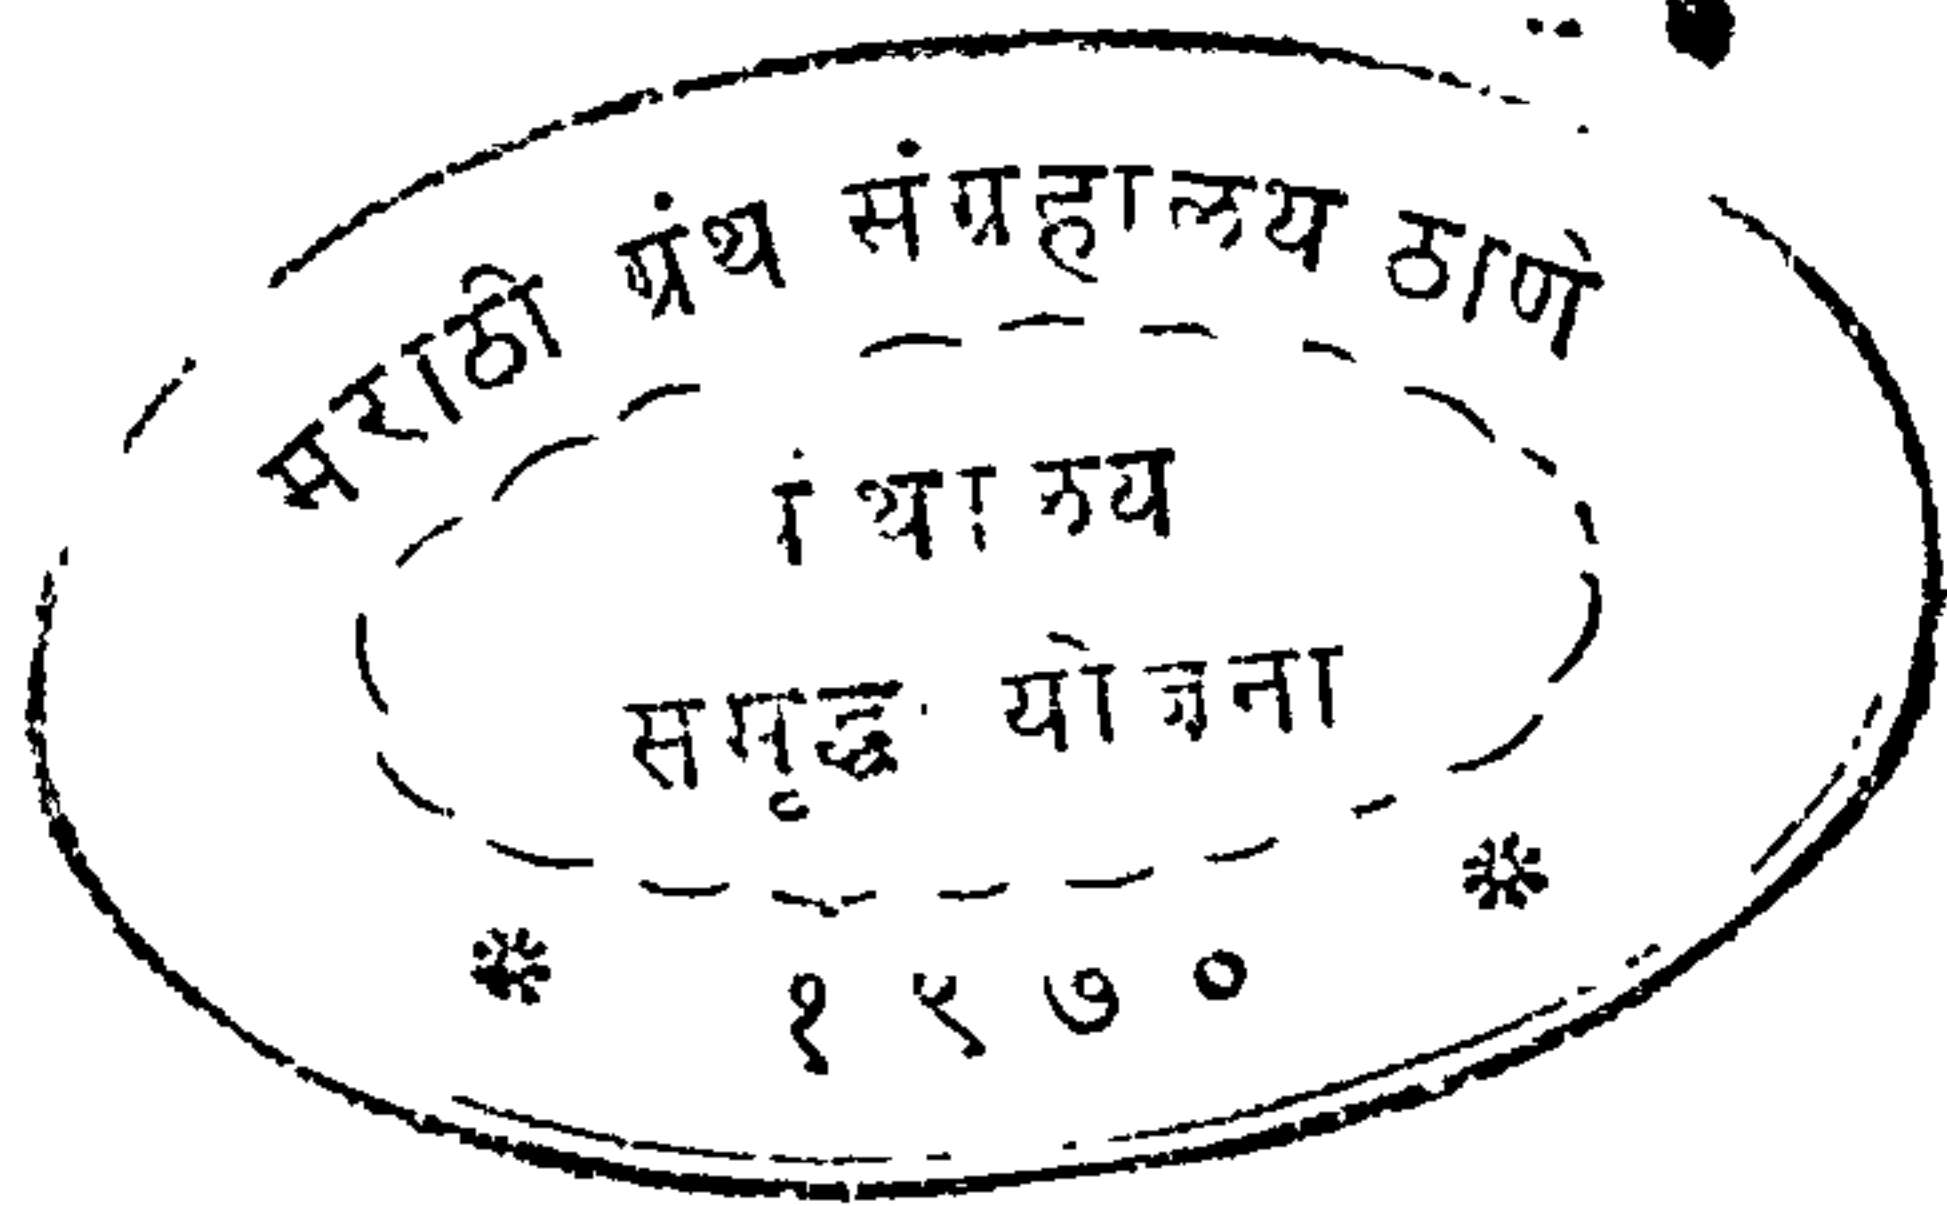 मराठी ग्रंथ संग्रहालय ठाणे
ग्रंथालय
समृद्ध योजना
१९७०